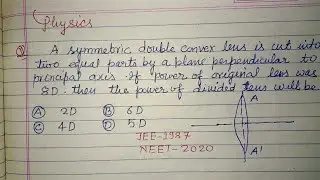 Physics
Q A symmetric double convex lens is cut into
two equal parts by a plane perpendicular to
principal axis. If power of original lens was
8D. then the power of divided lens will be
A 2D B 6D
C 4D D 5D
JEE-1987
NEET-2020
A
A'